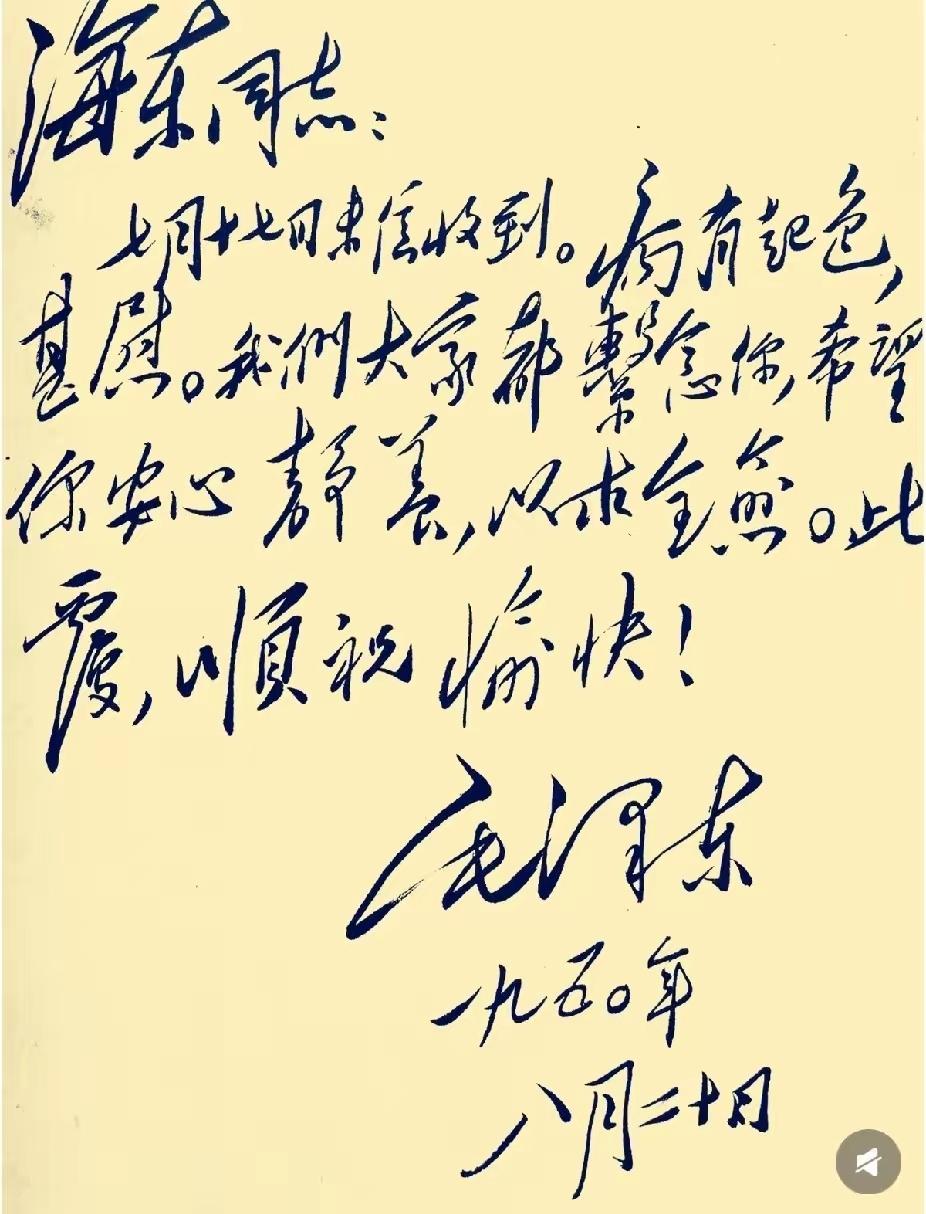 海东同志：
七月十七日来信收到。病有起色，
甚慰。我们大家都繫念你，希望
你安心静养，以求全愈。此
覆，顺祝愉快！
毛泽东
一九五〇年
八月二十日